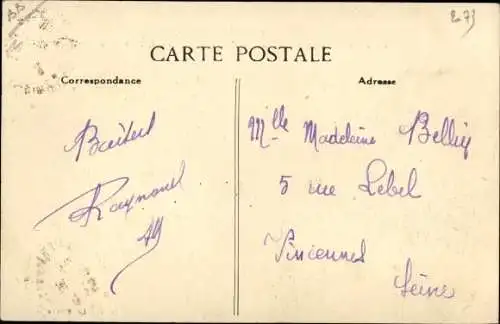 BB
273
CARTE POSTALE
Correspondance
Adresse
Raymond
Mlle Madeleine
5 rue Lebel
Vincennes
Seine